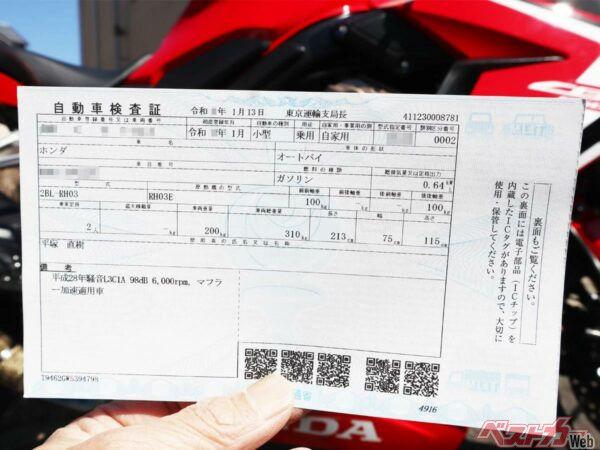 自動車検査証
令和 年 1月13日 東京運輸支局長 411230008781
自動車登録番号又は車両番号 初度登録年月 自動車の種別 用途 自家用・事業用の別 型式指定番号 類別区分番号
令和 年 1月 小型 乗用 自家用 0002
車名 車体の形状
ホンダ オートバイ
車台番号 燃料の種類 総排気量又は定格出力
ガソリン 0.64
型式 原動機の型式 前前軸重 前後軸重 後前軸重 後後軸重
2BL-RH03 RH03E 100kg -kg -kg 100kg
乗車定員 最大積載量 車両重量 車両総重量 長さ 幅 高さ
2人 -kg 200kg 310kg 213cm 75cm 115cm
使用者の氏名又は名称
平塚 直樹
備考
平成28年騒音L3C1A 98dB 6,000rpm, マフラ
ー加速適用車
T9462GW5394798
4916
裏面もご覧ください。
この裏面には電子部品（ICチップ）を
内蔵したICタグがありますので、大切に
使用・保管してください。
CBR
NDA
ベストカーWeb